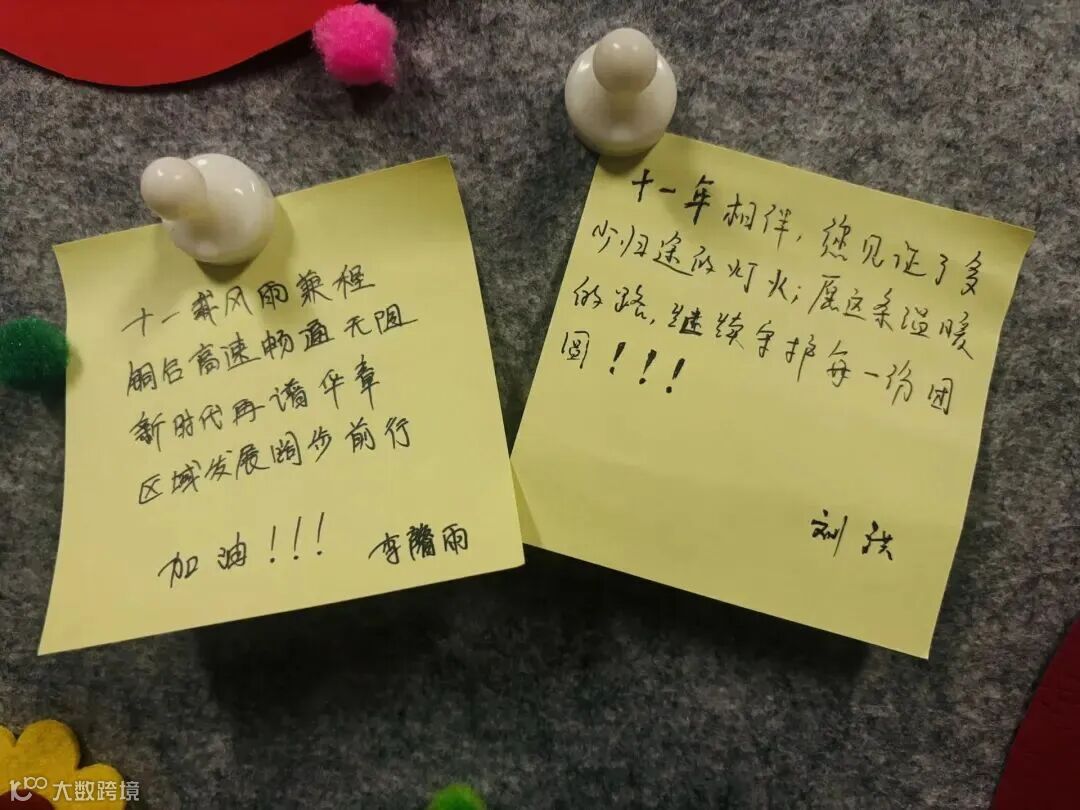 十一载风雨兼程
铜台高速畅通无阻
新时代再谱华章
区域发展阔步前行
加油！！！ 李腾雨
十一年相伴，您见证了多
少归途的灯火；愿这条温暖
的路，继续守护每一份团
圆！！！
刘
大数跨境